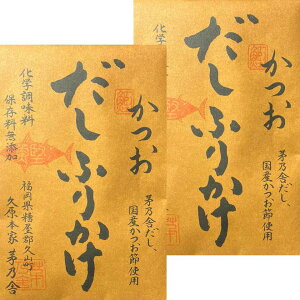 かつお
だしふりかけ
茅乃舎だし、
国産かつお節使用
化学調味料
保存料無添加
福岡県糟屋郡久山町
久原本家 茅乃舎
かつお
だしふりかけ
茅乃舎だし、
国産かつお節使用